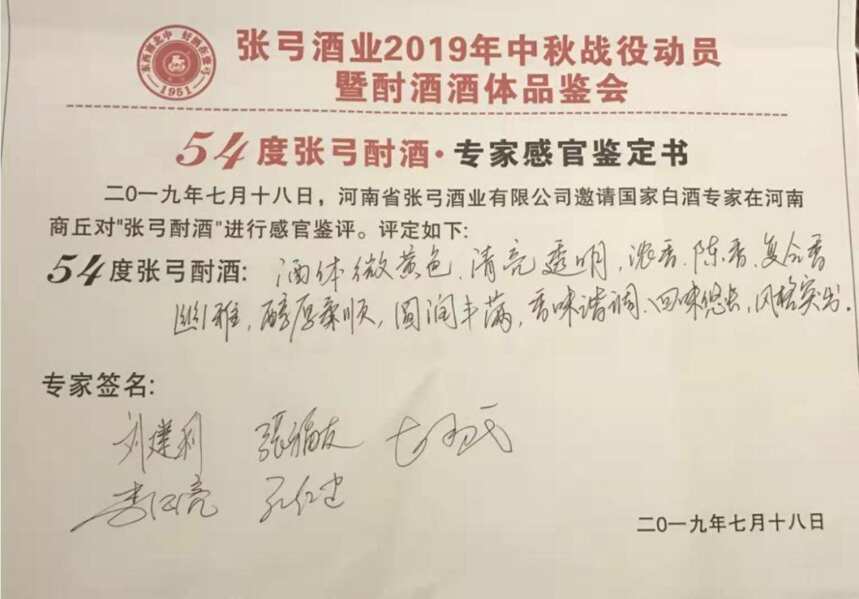 东西南北中 好酒在张弓
1951
张弓酒业2019年中秋战役动员
暨酎酒酒体品鉴会
54度张弓酎酒·专家感官鉴定书
二〇一九年七月十八日，河南省张弓酒业有限公司邀请国家白酒专家在河南
商丘对"张弓酎酒"进行感官鉴评。评定如下：
54度张弓酎酒：酒体微黄色、清亮透明，浓香、陈香、复合香
幽雅，醇厚柔顺，圆润丰满，香味谐调、回味悠长，风格突出。
专家签名：
刘建利 張福友
李 亮 孔
二〇一九年七月十八日